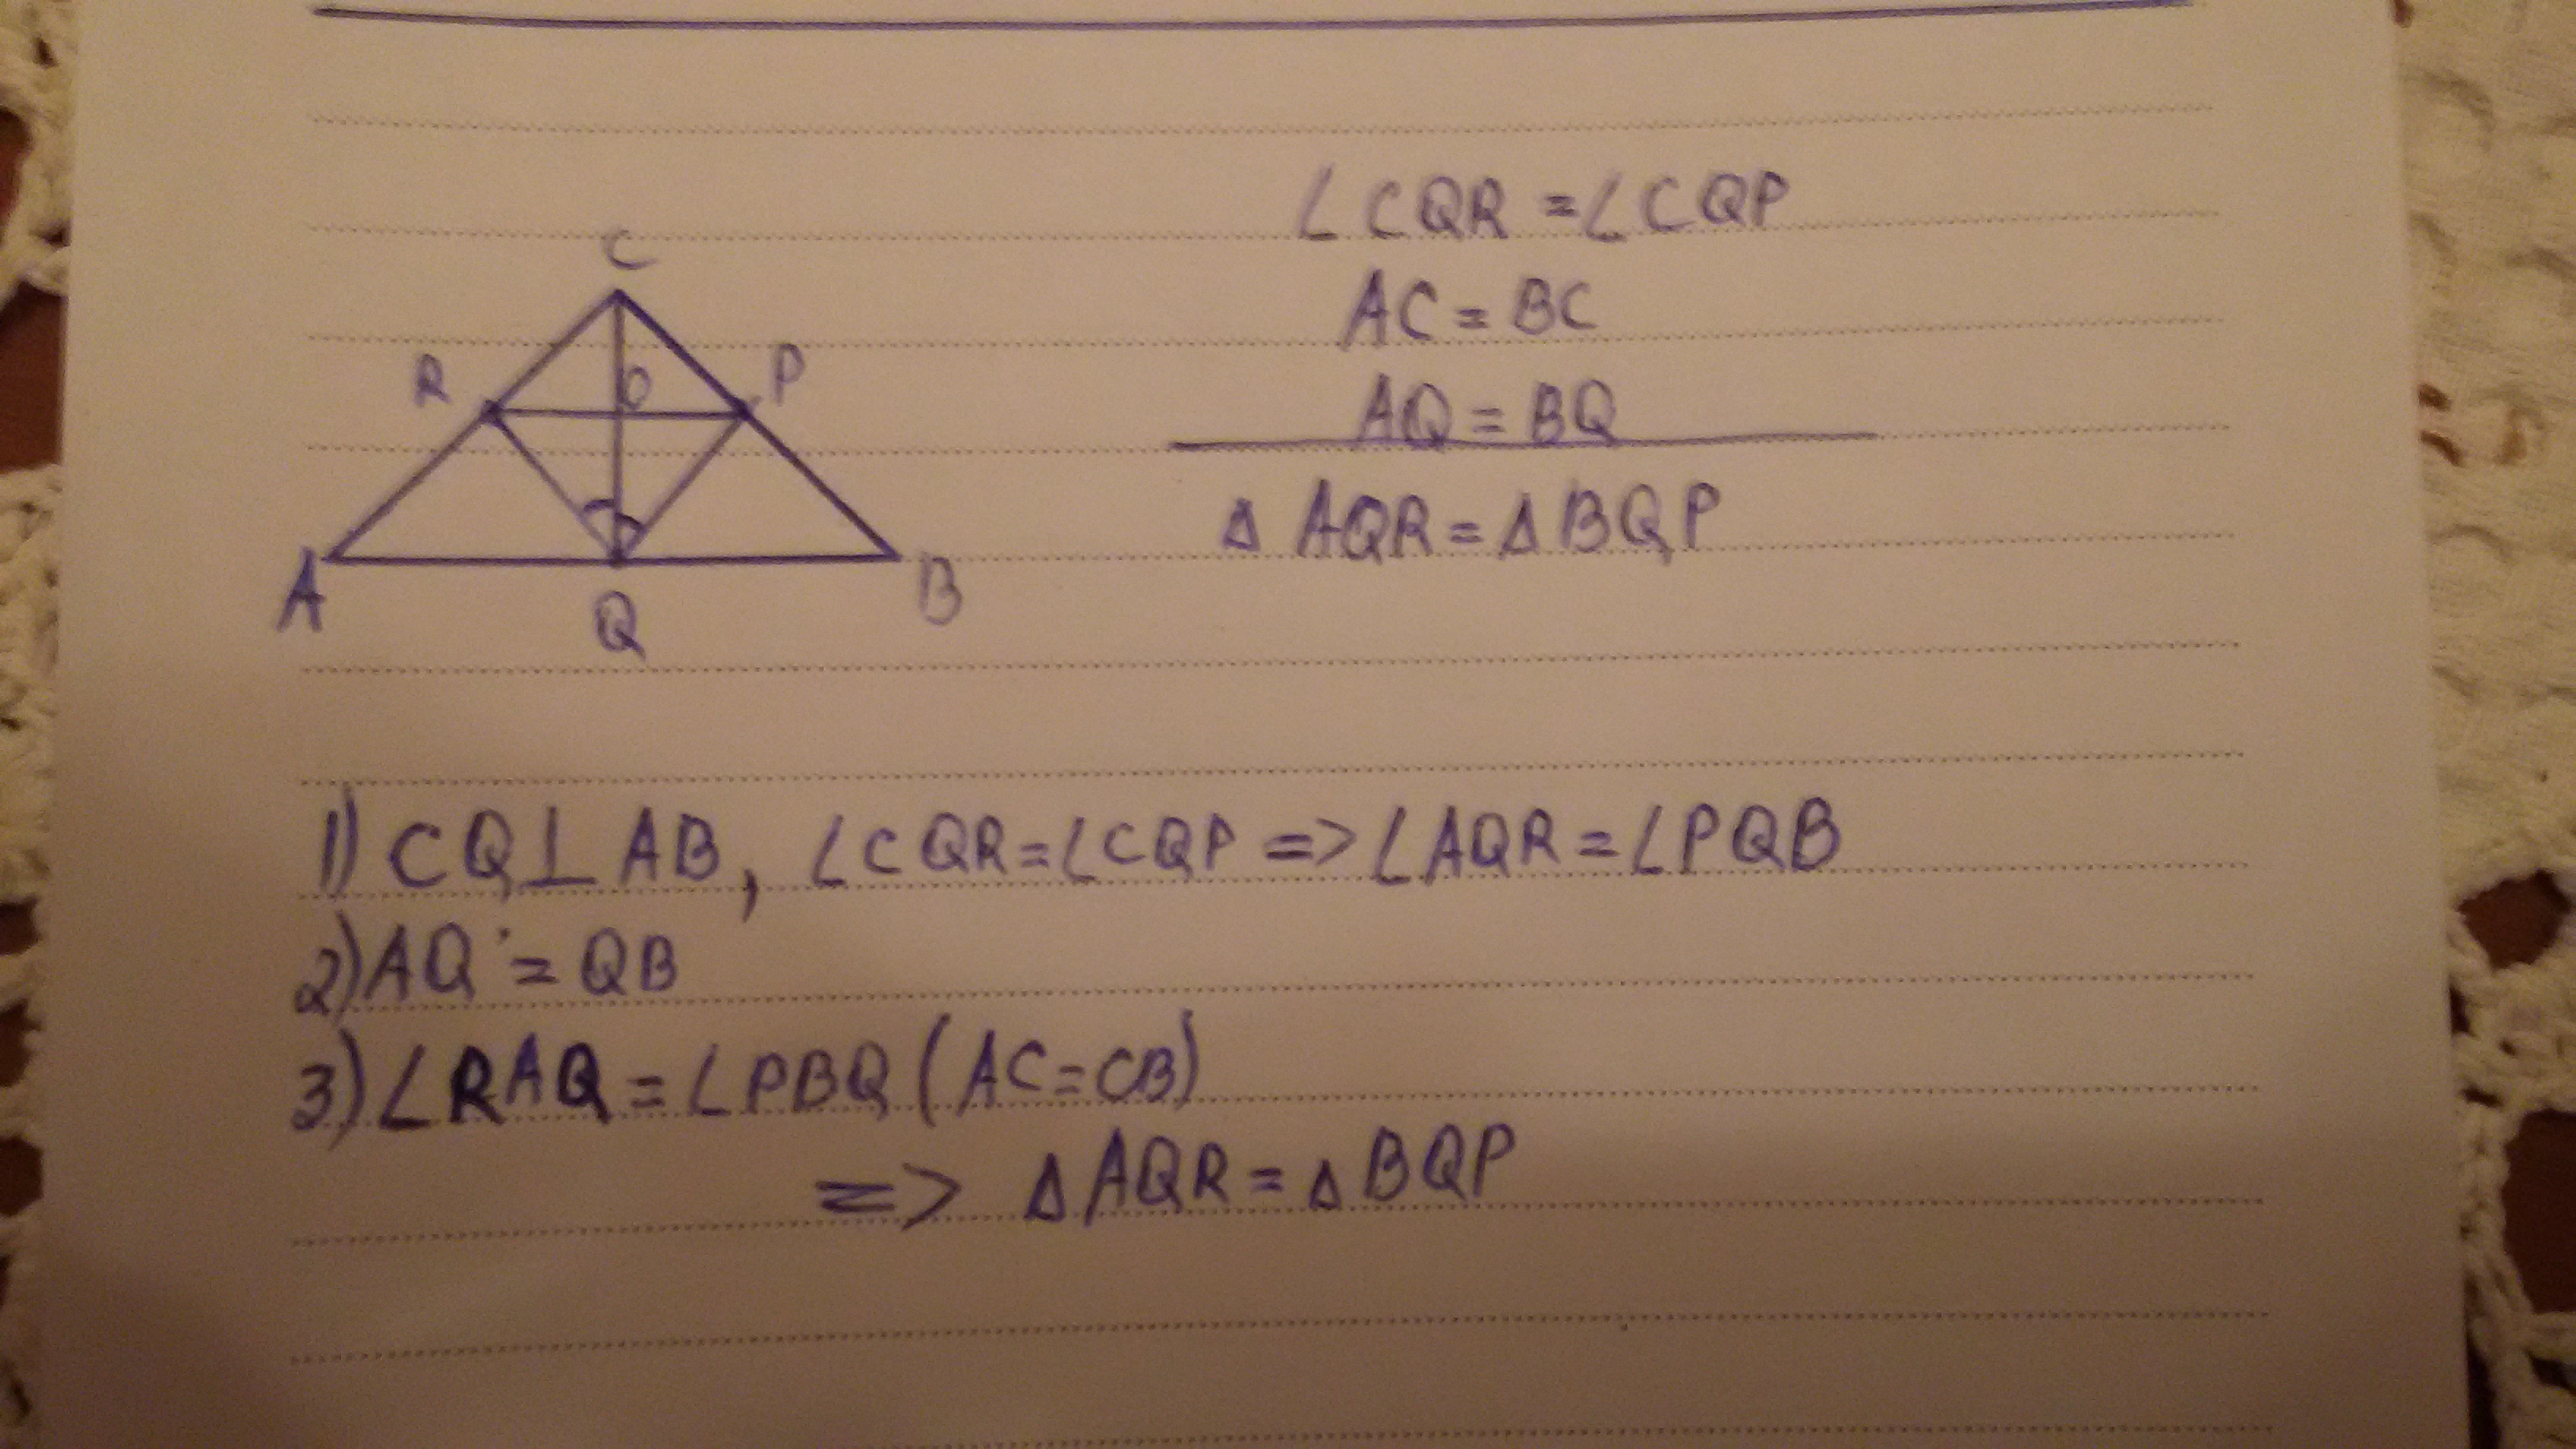 C
R
O
P
A
Q
B
∠CQR = ∠CQP
AC = BC
AQ = BQ
Δ AQR = Δ BQP
1) CQ ⊥ AB, ∠CQR = ∠CQP => ∠AQR = ∠PQB
2) AQ = QB
3) ∠RAQ = ∠PBQ (AC = CB)
=> Δ AQR = Δ BQP